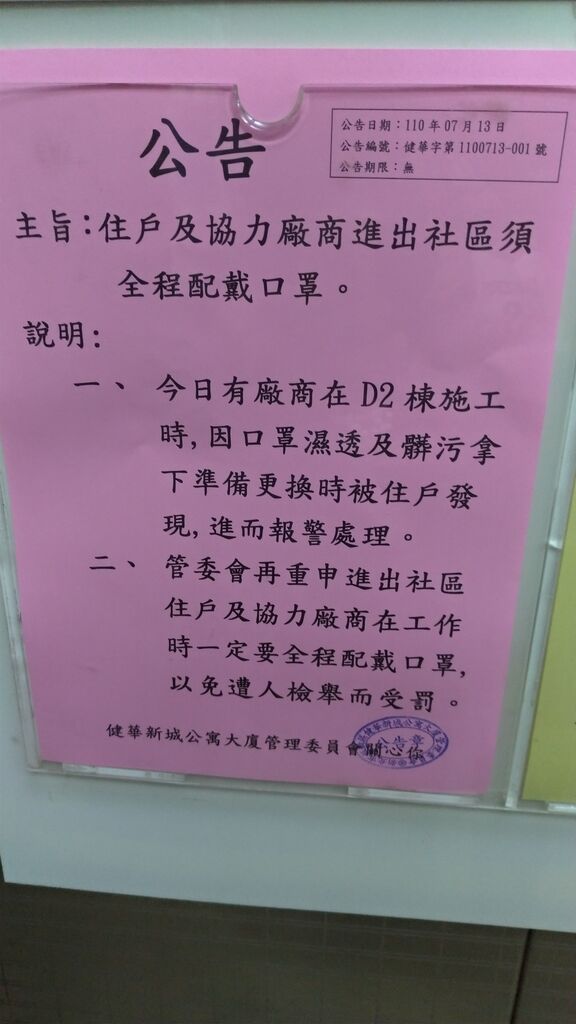 公告
公告日期：110 年 07 月 13 日
公告編號：健華字第 1100713-001 號
公告期限：無
主旨：住戶及協力廠商進出社區須
全程配戴口罩。
說明：
一、 今日有廠商在 D2 棟施工
時，因口罩濕透及髒污拿
下準備更換時被住戶發
現，進而報警處理。
二、 管委會再重申進出社區
住戶及協力廠商在工作
時一定要全程配戴口罩，
以免遭人檢舉而受罰。
健華新城公寓大廈管理委員會關心你
公告章